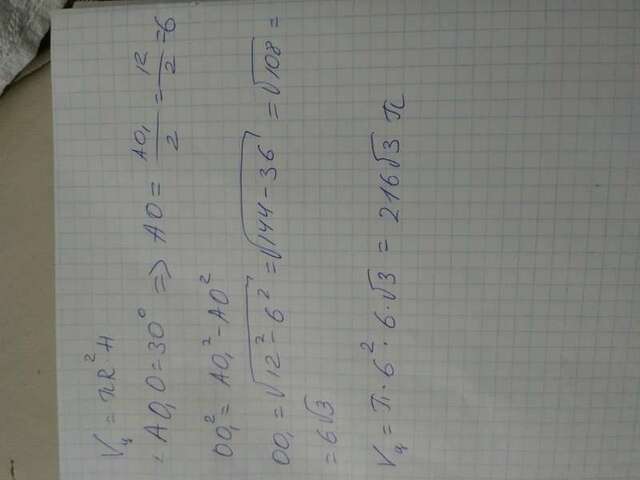 Vц = πR²·H
∠AO₁O=30° => AO = AO₁/2 = 12/2 = 6
OO₁² = AO₁² - AO²
OO₁ = √(12² - 6²) = √(144 - 36) = √108 =
= 6√3
Vц = π·6²·6·√3 = 216√3 π